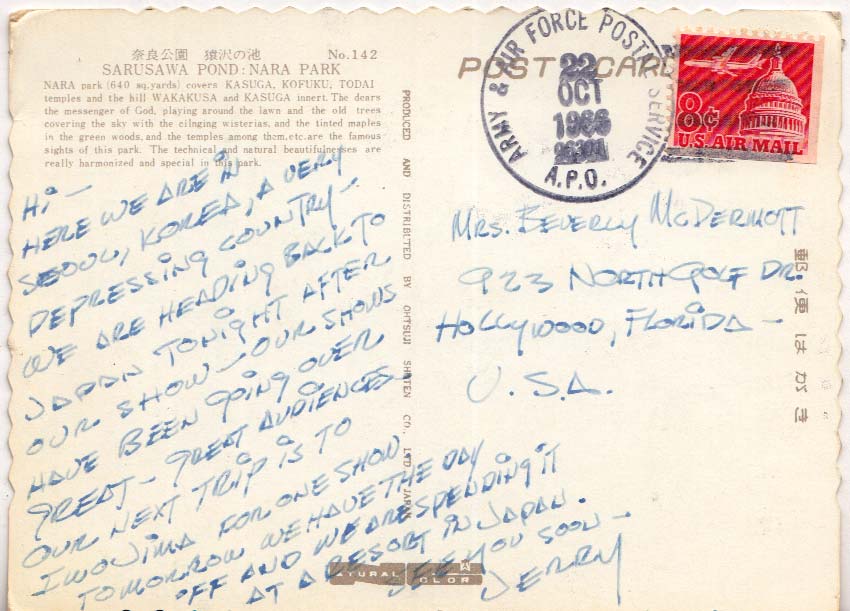 奈良公園 猿沢の池 No.142
SARUSAWA POND: NARA PARK
NARA park (640 sq.yards) covers KASUGA, KOFUKU, TODAI
temples and the hill WAKAKUSA and KASUGA innert. The dears
the messenger of God, playing around the lawn and the old trees
covering the sky with the cilnging wisterias, and the tinted maples
in the green woods, and the temples among them, etc. are the famous
sights of this park. The technical and natural beautifulnesses are
really harmonized and special in this park.
HI —
HERE WE ARE IN
SEOUL, KOREA, A VERY
DEPRESSING COUNTRY —
WE ARE HEADING BACK TO
JAPAN TONIGHT AFTER
OUR SHOW — OUR SHOWS
HAVE BEEN GOING OVER
GREAT — GREAT AUDIENCES —
OUR NEXT TRIP IS TO
IWO JIMA FOR ONE SHOW.
TOMORROW WE HAVE THE DAY
OFF AND WE ARE SPENDING IT
AT A RESORT IN JAPAN.
SEE YOU SOON —
JERRY
PRODUCED AND DISTRIBUTED BY OHTSUJI SHOTEN CO. LTD. JAPAN
NATURAL COLOR
POST CARD
ARMY & AIR FORCE POSTAL SERVICE
22
OCT
1966
A.P.O.
8c
U.S. AIR MAIL
MRS. BEVERLY MCDERMOTT
923 NORTH GOLF DR.
HOLLYWOOD, FLORIDA —
U.S.A.
郵便はがき